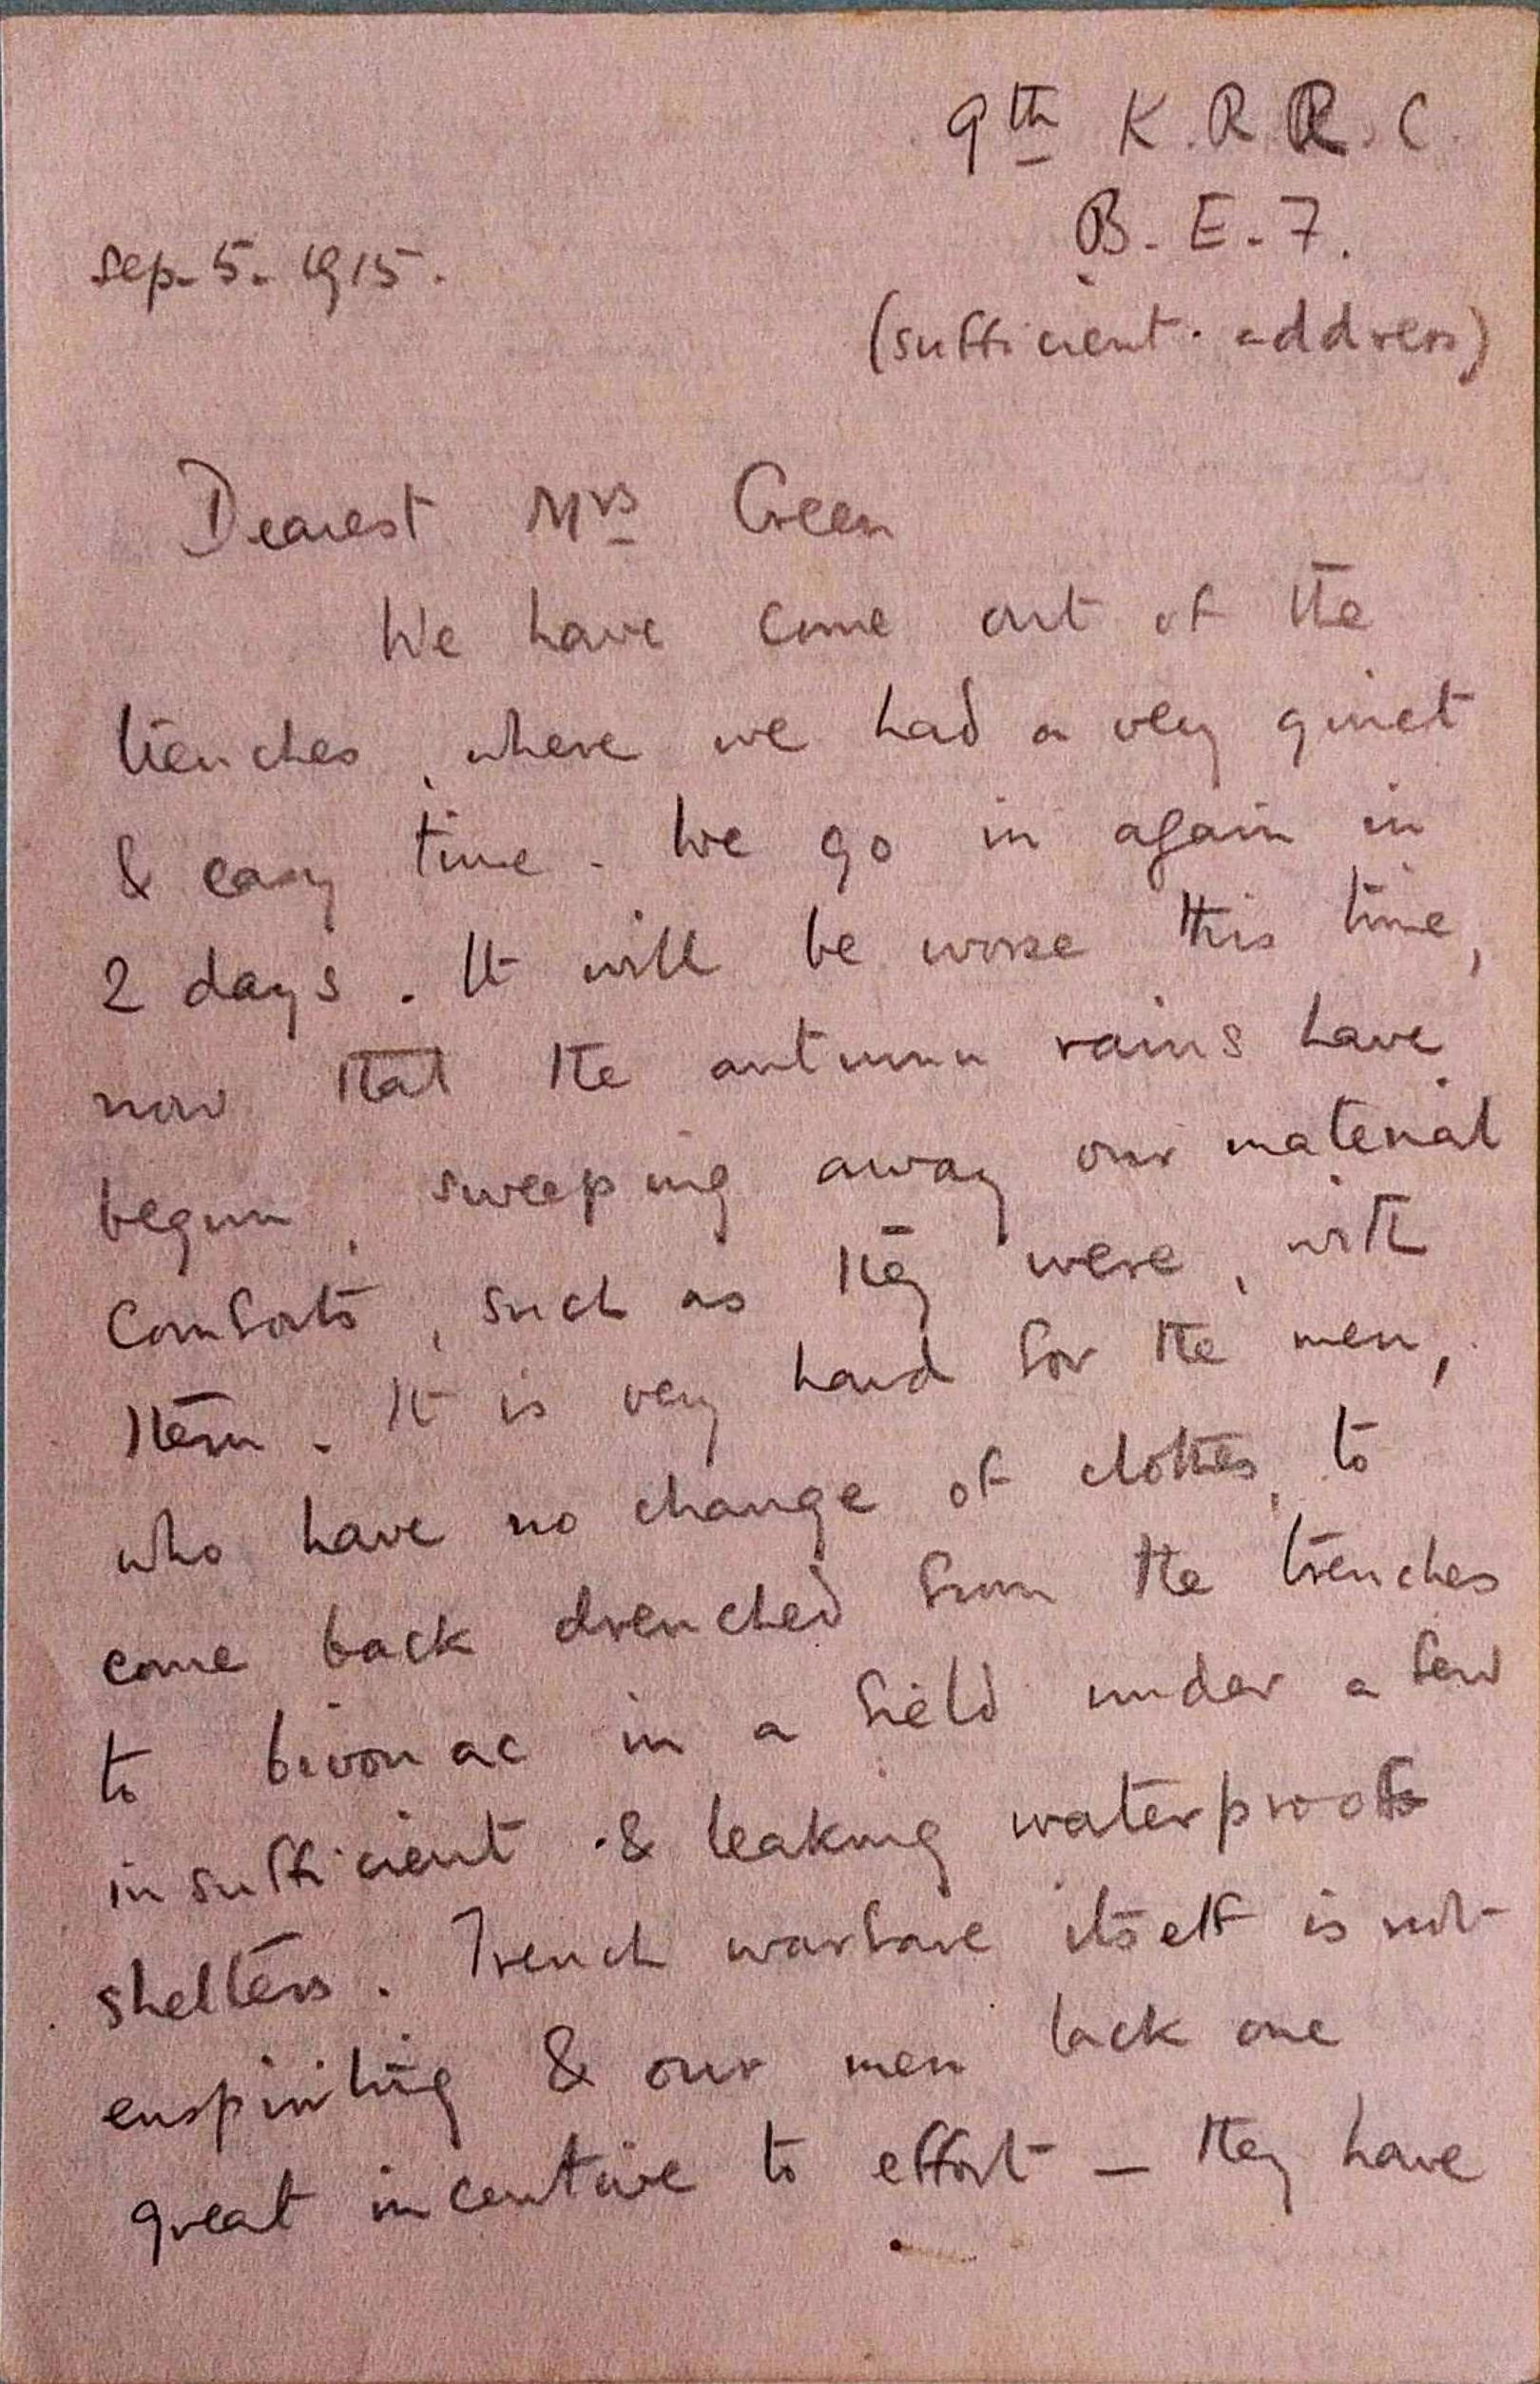 9th K.R.R.C.
B.E.F.
Sep. 5. 1915.
(sufficient address)
Dearest Mrs Green
We have come out of the
trenches, where we had a very quiet
& easy time. We go in again in
2 days. It will be worse this time,
now that the autumn rains have
begun, sweeping away our material
comforts, such as they were, with
them. It is very hard for the men,
who have no change of clothes, to
come back drenched from the trenches
to bivouac in a field under a few
insufficient & leaking waterproof
shelters. Trench warfare itself is not
enspiriting & our men lack one
great incentive to effort – they have